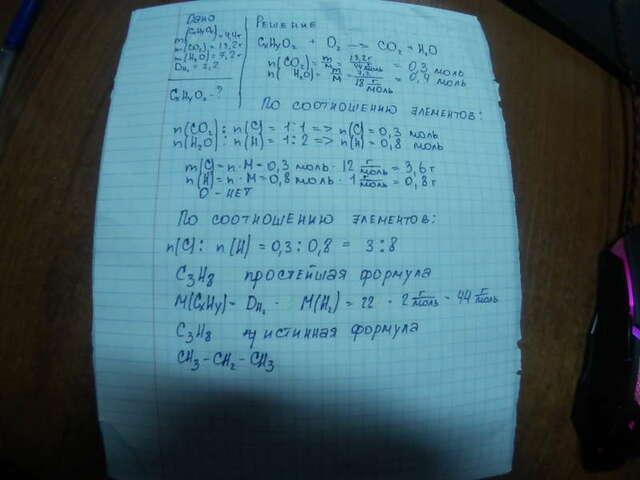 Дано
m(CxHyO2)=4,4г
m(CO2)=13,2г
m(H2O)=7,2г
DH2=2,2
CxHyO2-?
Решение
CxHyO2 + O2 → CO2 + H2O
n(CO2)= m/M = 13,2г/44г/моль = 0,3 моль
n(H2O)= m/M = 7,2/18 г/моль = 0,4 моль
По соотношению элементов:
n(CO2) : n(C) = 1:1 => n(C) = 0,3 моль
n(H2O) : n(H) = 1:2 => n(H) = 0,8 моль
m(C)=n·M=0,3 моль · 12 г/моль = 3,6 г
n(H)=n·M=0,8 моль · 1 г/моль = 0,8 г
O - нет
По соотношению элементов:
n(C) : n(H) = 0,3 : 0,8 = 3:8
C3H8 простейшая формула
M(CxHy)= DH2 · M(H2) = 22 · 2 г/моль = 44 г/моль
C3H8 истинная формула
CH3-CH2-CH3